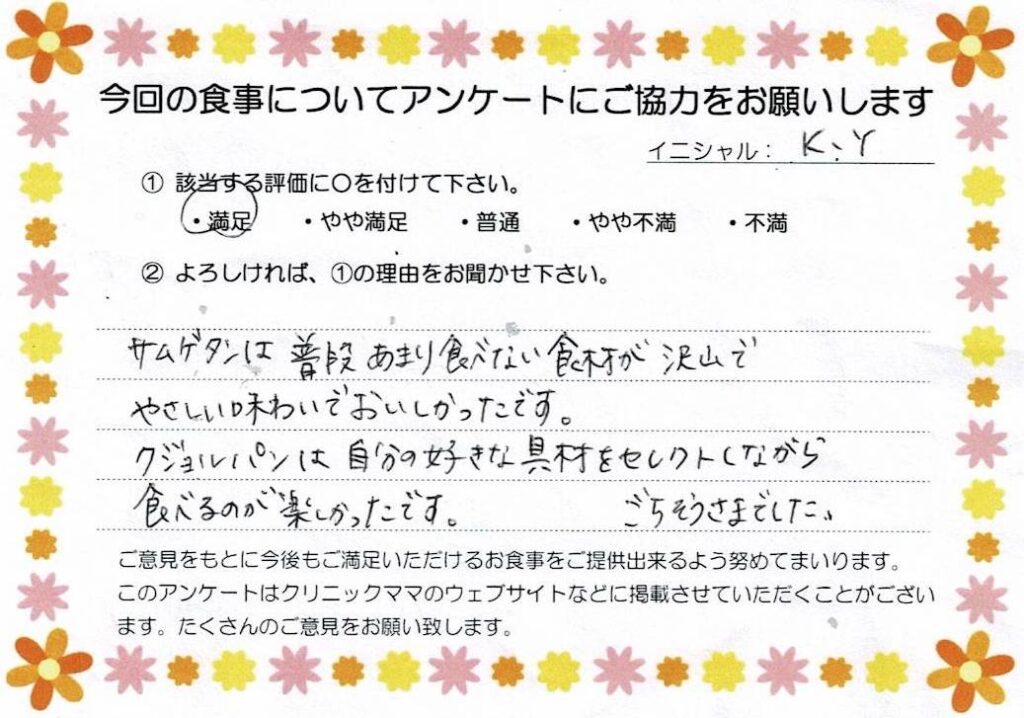 今回の食事についてアンケートにご協力をお願いします
イニシャル： K、Y
① 該当する評価に〇を付けて下さい。
・満足 ・やや満足 ・普通 ・やや不満 ・不満
② よろしければ、①の理由をお聞かせ下さい。
サムゲタンは 普段 あまり食べない 食材が 沢山で
やさしい味わいでおいしかったです。
クジョルパンは 自分の好きな 具材をセレクトしながら
食べるのが楽しかったです。 ごちそうさまでした、、
ご意見をもとに今後もご満足いただけるお食事をご提供出来るよう努めてまいります。
このアンケートはクリニックママのウェブサイトなどに掲載させていただくことがござい
ます。たくさんのご意見をお願い致します。